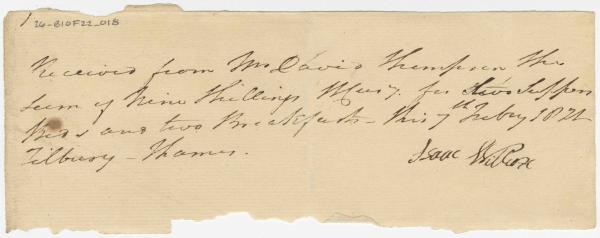 26-B10F22_018
Received from Mr David Thompson the
sum of Nine Shillings for two Suppers
Beds and two Breakfasts - this 7th Feby 1821
Tilbury - Thames.
Isaac Willcox